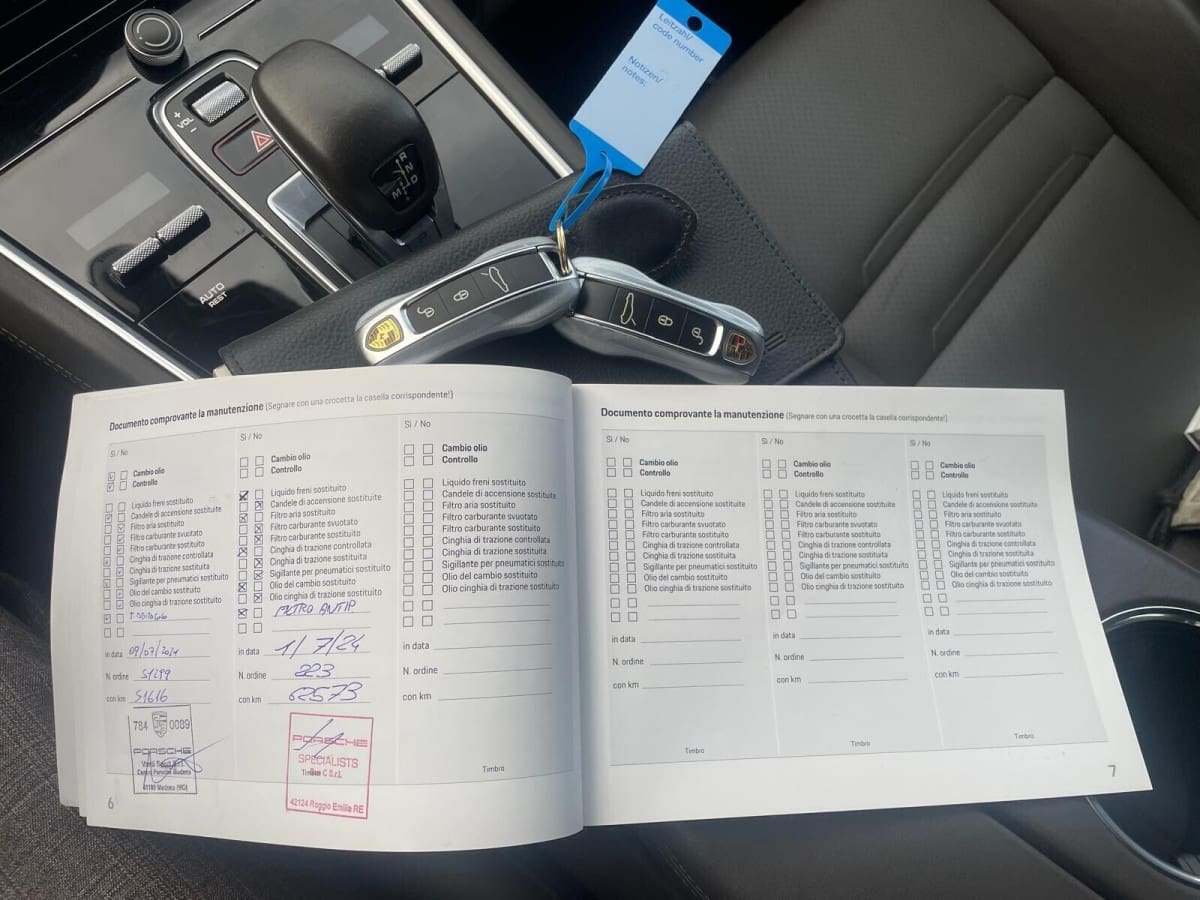 Leitzahl/
code number
Notizen/
notes:
+
VOL
-
R
N
D
M
+
AUTO
REST
Documento comprovante la manutenzione (Segnare con una crocetta la casella corrispondente!)
Sì / No
Cambio olio
Controllo
Liquido freni sostituito
Candele di accensione sostituite
Filtro aria sostituito
Filtro carburante svuotato
Filtro carburante sostituito
Cinghia di trazione controllata
Cinghia di trazione sostituita
Sigillante per pneumatici sostituito
Olio del cambio sostituito
Olio cinghia di trazione sostituito
in data 09/07/2021
N. ordine 51299
con km 51616
784 0089
PORSCHE
Centro Porsche Modena
Sì / No
Cambio olio
Controllo
Liquido freni sostituito
Candele di accensione sostituite
Filtro aria sostituito
Filtro carburante svuotato
Filtro carburante sostituito
Cinghia di trazione controllata
Cinghia di trazione sostituita
Sigillante per pneumatici sostituito
Olio del cambio sostituito
Olio cinghia di trazione sostituito
FILTRO ANTIP
in data 1/7/24
N. ordine 223
con km 62573
PORSCHE
SPECIALISTS
42124 Reggio Emilia RE
Sì / No
Cambio olio
Controllo
Liquido freni sostituito
Candele di accensione sostituite
Filtro aria sostituito
Filtro carburante svuotato
Filtro carburante sostituito
Cinghia di trazione controllata
Cinghia di trazione sostituita
Sigillante per pneumatici sostituito
Olio del cambio sostituito
Olio cinghia di trazione sostituito
in data
N. ordine
con km
Timbro
6
Documento comprovante la manutenzione (Segnare con una crocetta la casella corrispondente!)
Sì / No
Cambio olio
Controllo
Liquido freni sostituito
Candele di accensione sostituite
Filtro aria sostituito
Filtro carburante svuotato
Filtro carburante sostituito
Cinghia di trazione controllata
Cinghia di trazione sostituita
Sigillante per pneumatici sostituito
Olio del cambio sostituito
Olio cinghia di trazione sostituito
in data
N. ordine
con km
Timbro
Sì / No
Cambio olio
Controllo
Liquido freni sostituito
Candele di accensione sostituite
Filtro aria sostituito
Filtro carburante svuotato
Filtro carburante sostituito
Cinghia di trazione controllata
Cinghia di trazione sostituita
Sigillante per pneumatici sostituito
Olio del cambio sostituito
Olio cinghia di trazione sostituito
in data
N. ordine
con km
Timbro
Sì / No
Cambio olio
Controllo
Liquido freni sostituito
Candele di accensione sostituite
Filtro aria sostituito
Filtro carburante svuotato
Filtro carburante sostituito
Cinghia di trazione controllata
Cinghia di trazione sostituita
Sigillante per pneumatici sostituito
Olio del cambio sostituito
Olio cinghia di trazione sostituito
in data
N. ordine
con km
Timbro
7